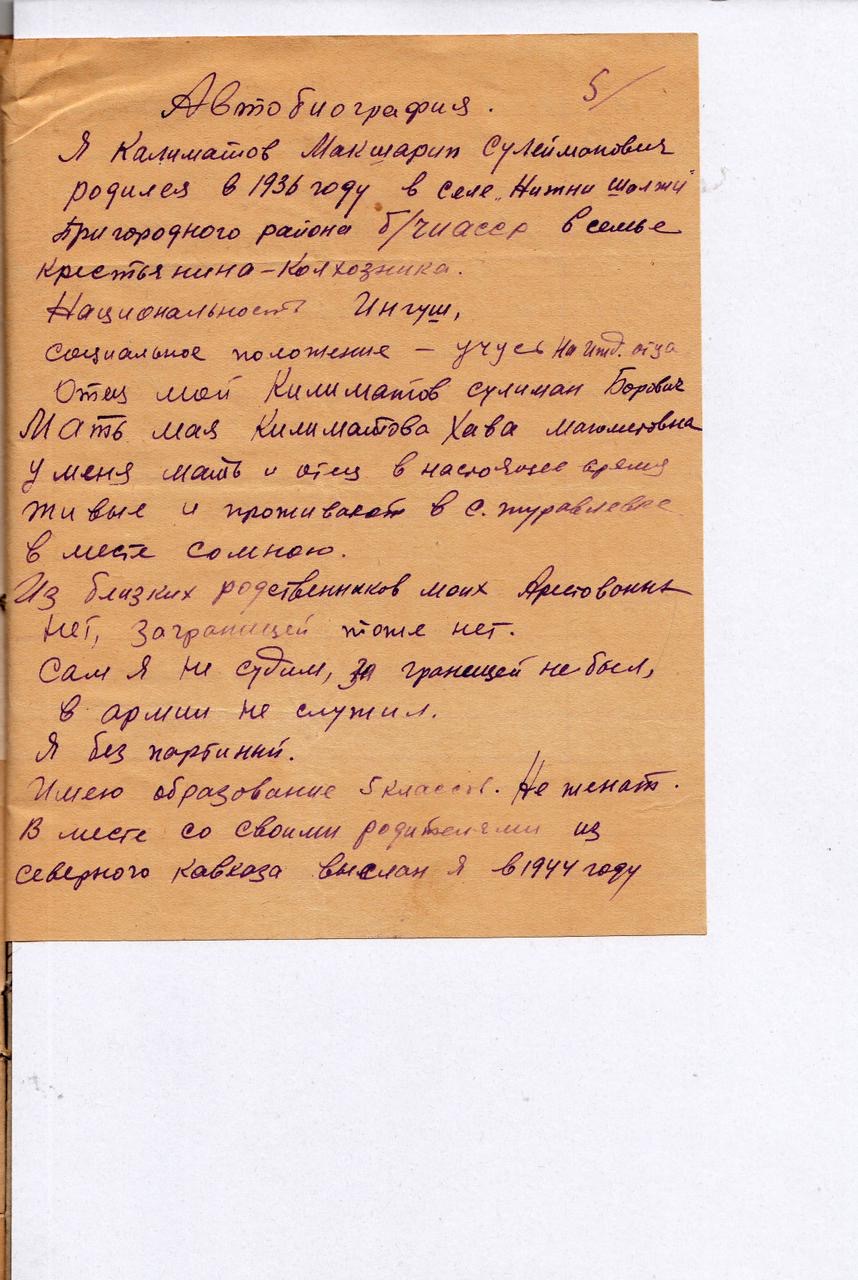 5/
Автобиография.
Я Калиматов Макшарип Сулейманович
родился в 1936 году в селе „Нижни Шолжи"
Пригородного района б/ЧИАССР в семье
крестьянина-Колхозника.
Национальность Ингуш,
социальное положение – учусь на ижд. отца
Отец мой Килиматов Сулиман Борович
Мать мая Килиматова Хава Магометовна
у меня мать и отец в настоящее время
живые и проживают в с. Журавлевке
в месте сомною.
Из близких родственников моих Арестованых
нет, заграницей тоже нет.
Сам я не судим, за границей не был,
в армии не служил.
Я без партиный.
Имею образование 5 классов. Не женат.
В месте со своими родителями из
северного кавказа выслан я в 1944 году